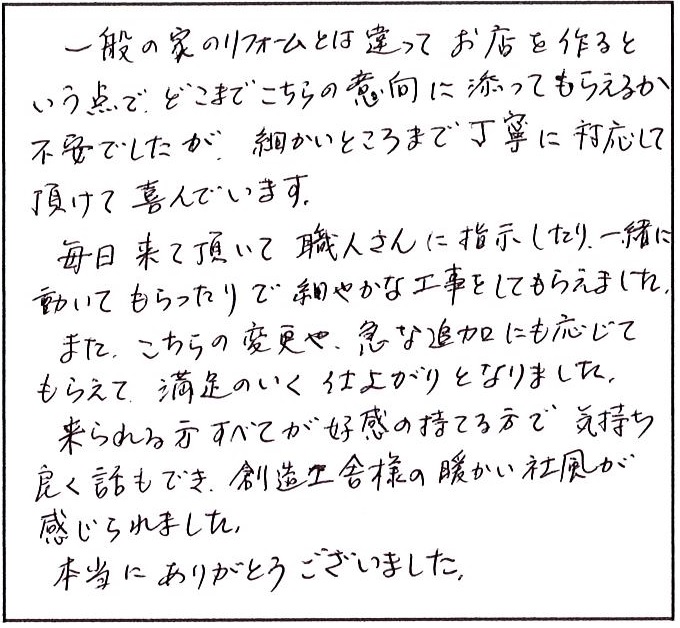 一般の家のリフォームとは違って お店を作ると
いう点で、どこまでこちらの意向に添ってもらえるか
不安でしたが、細かいところまで丁寧に対応して
頂けて喜んでいます。
毎日来て頂いて職人さんに指示したり、一緒に
動いてもらったりで細やかな工事をしてもらえました。
また、こちらの変更や、急な追加にも応じて
もらえて、満足のいく仕上がりとなりました。
来られる方すべてが好感の持てる方で気持ち
良く話もでき、創造工舎様の暖かい社風が
感じられました。
本当にありがとうございました。